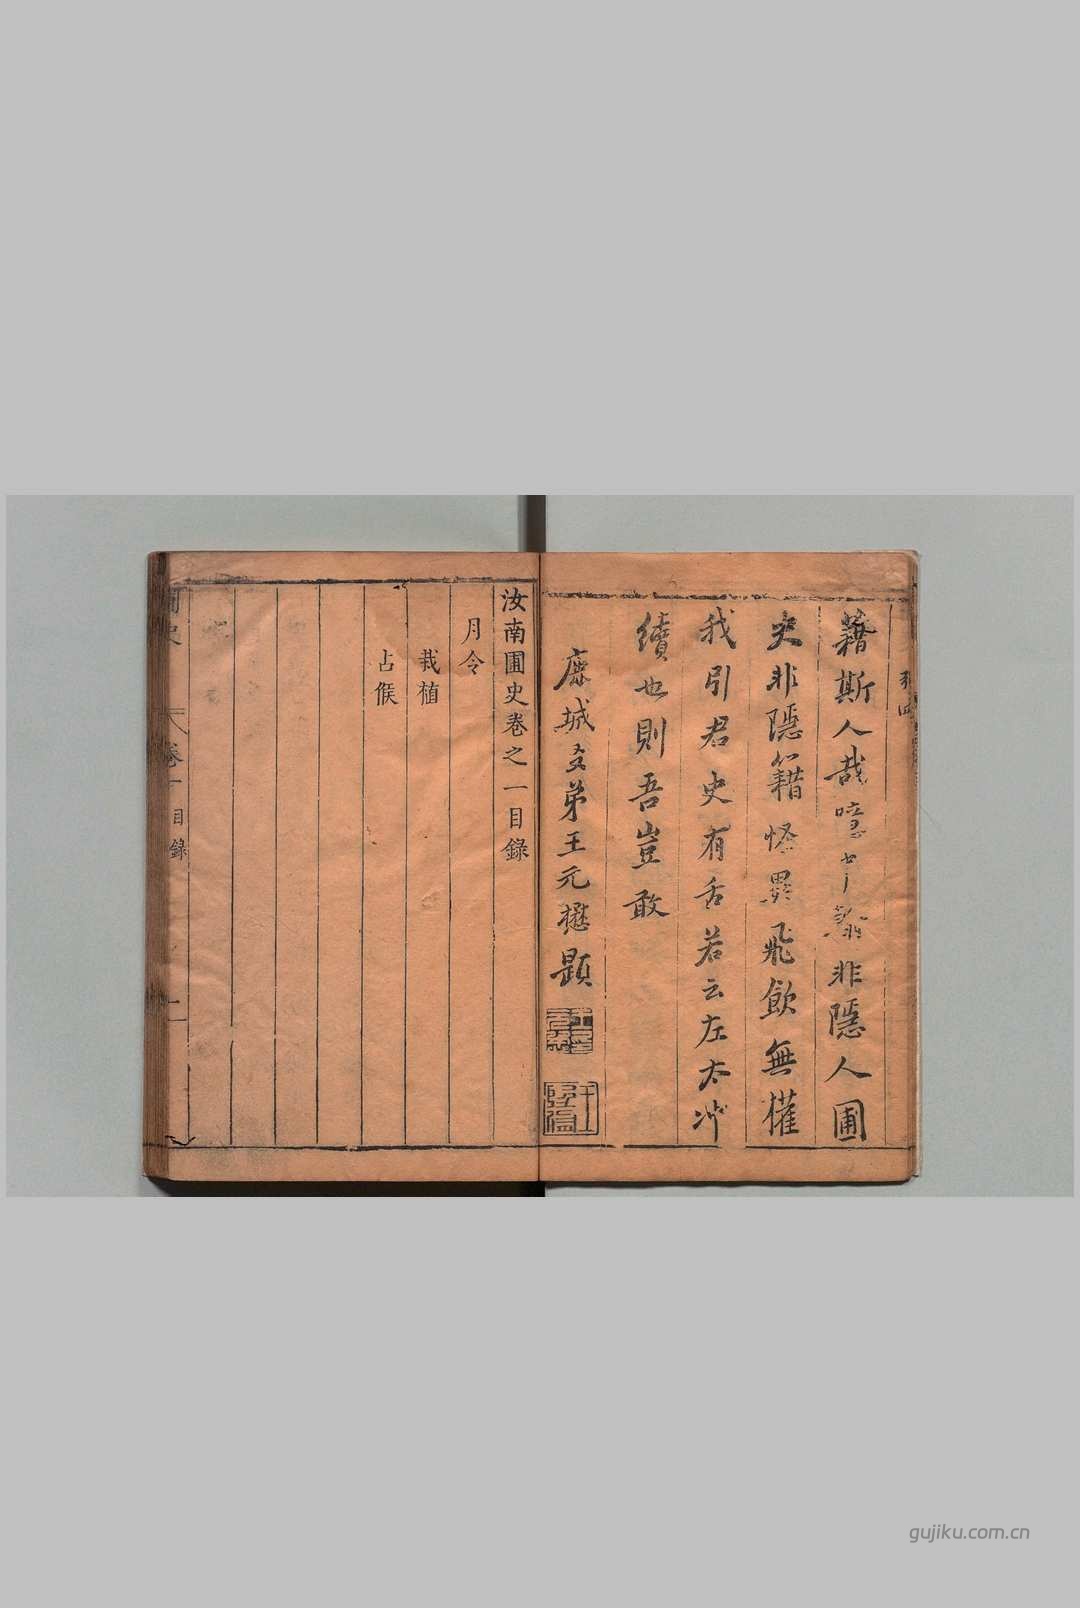 藉斯人哉噫非隱人圃
史非隱籍怪異飛飲無權
我引君史有舌若云左太冲
續也則吾豈敢
鹿城友弟王元懋題
汝南圃史卷之一目錄
月令
栽植
占候
卷一
目錄
gujiku.com.cn